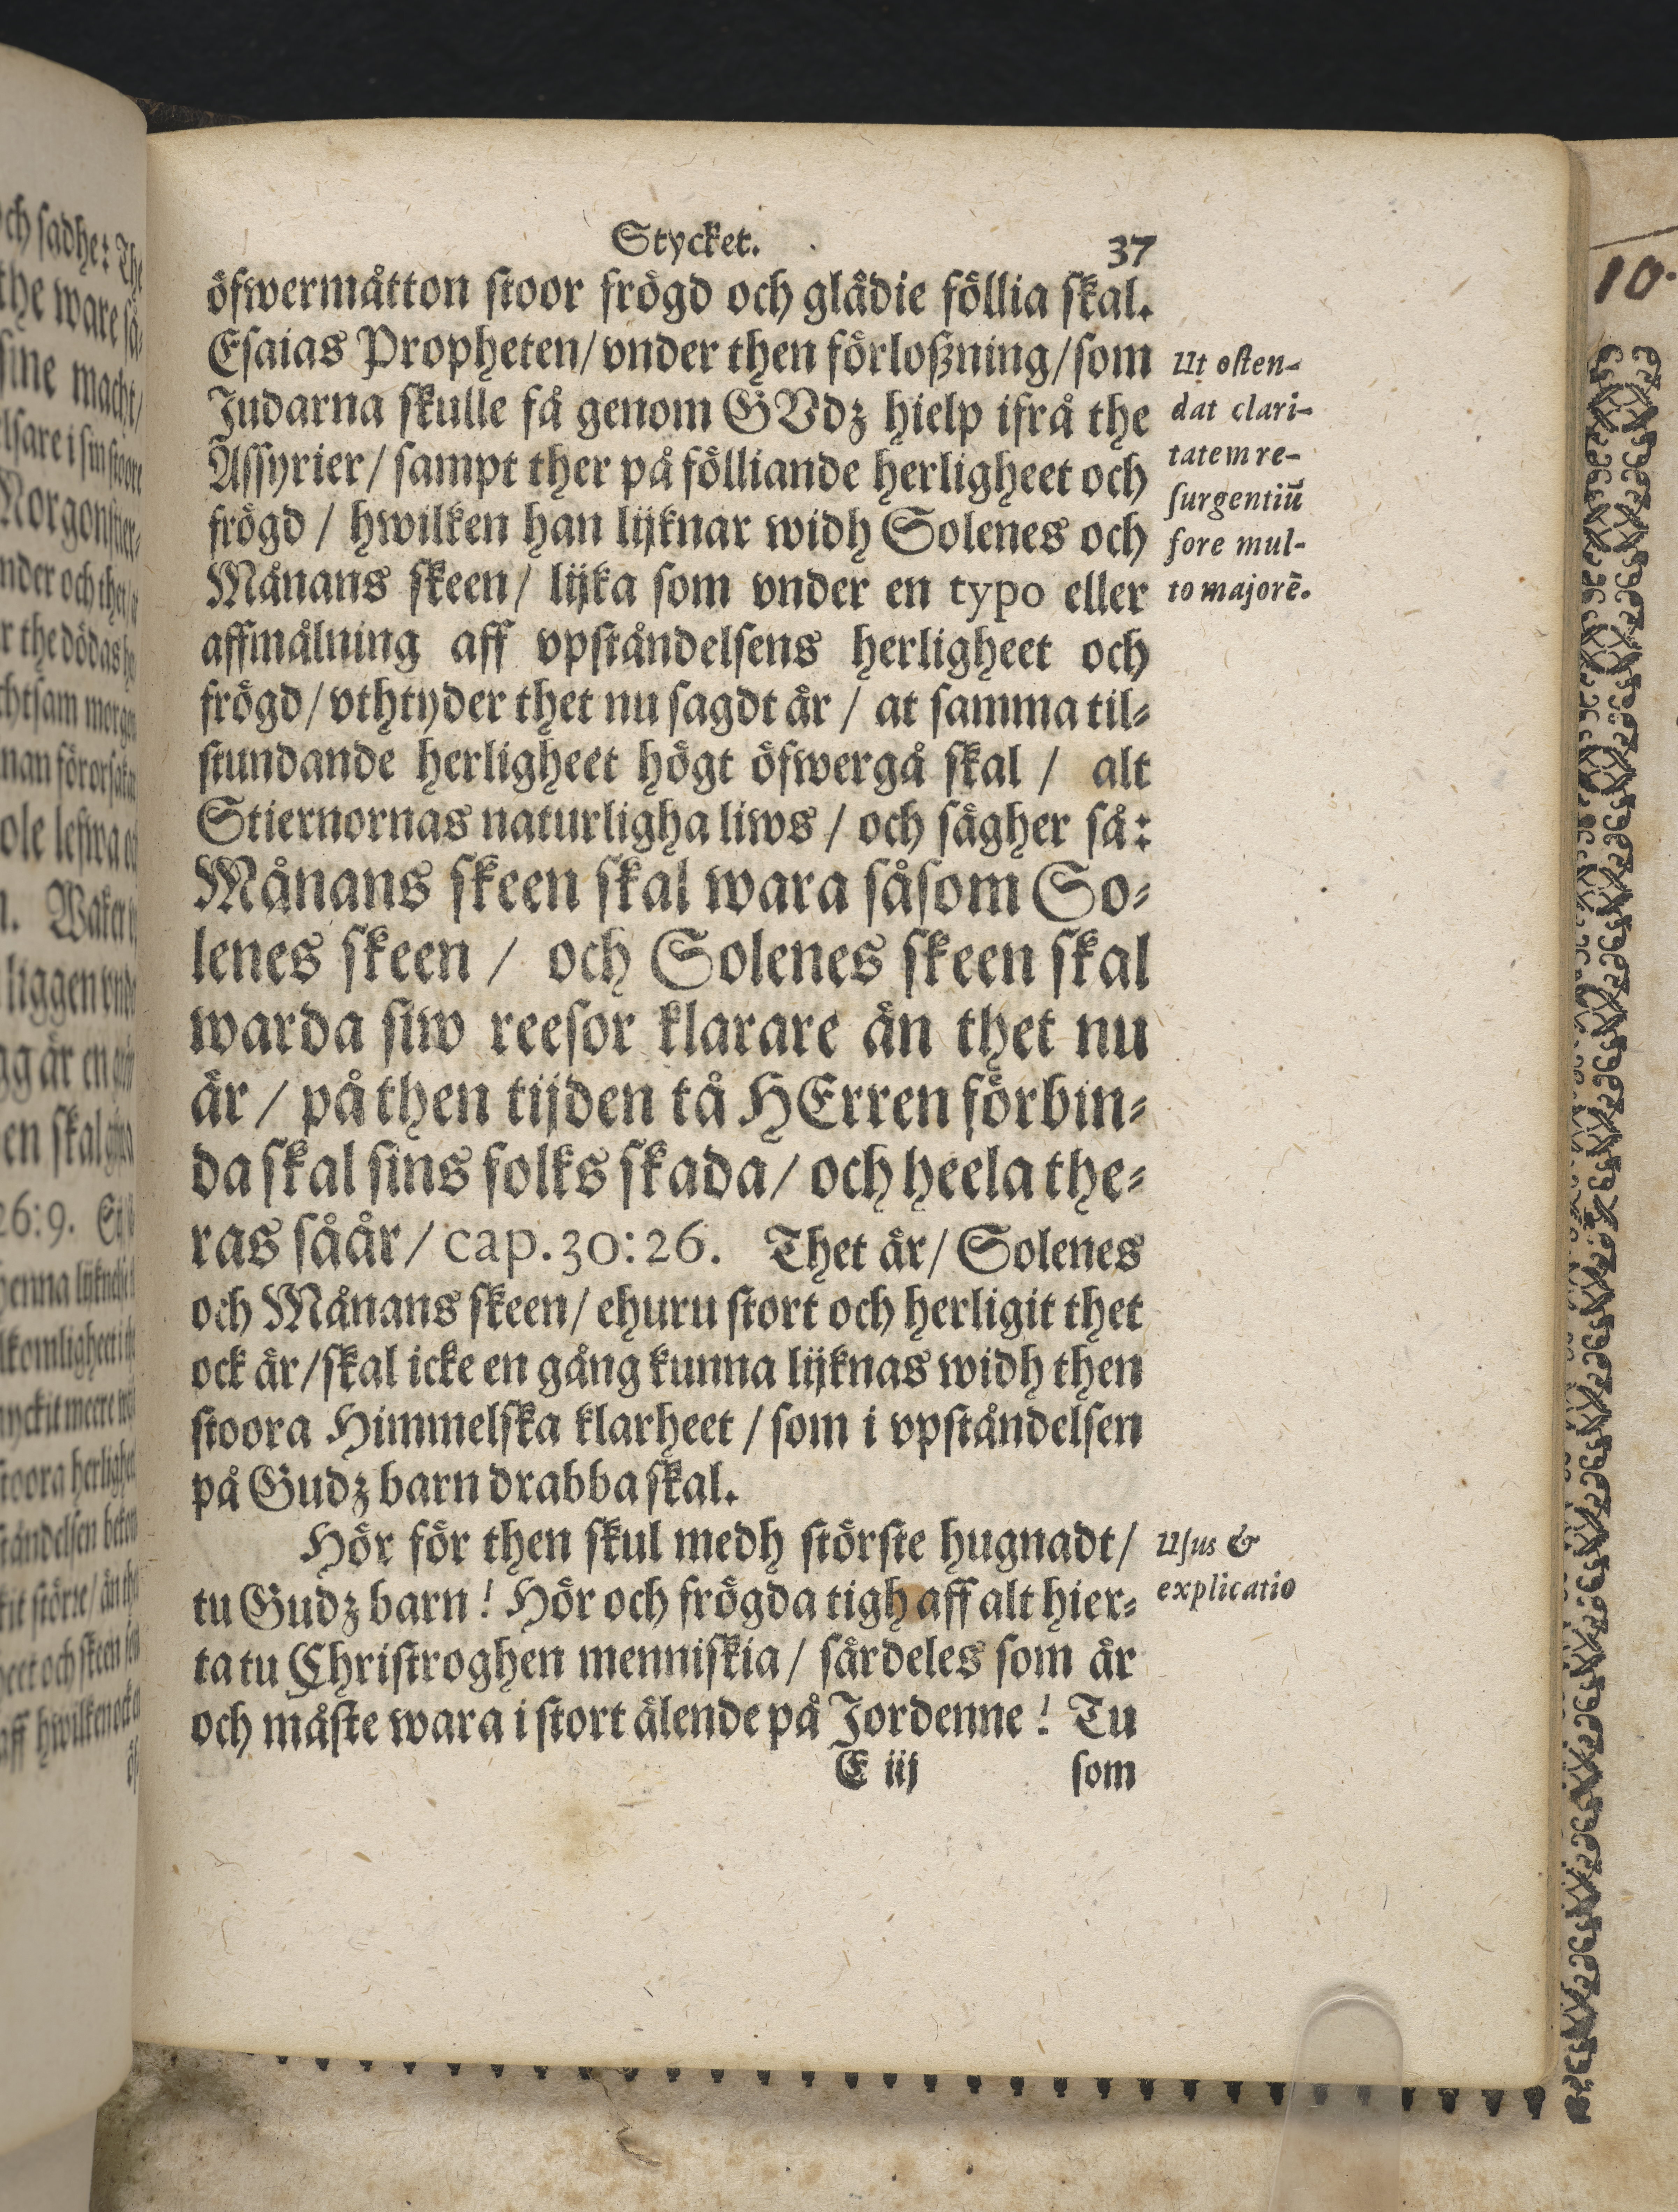 Stycket. 37
öfwermåtton stoor frögd och glädie föllia skal.
Esaias Propheten/ vnder then förloßning/ som
Judarna skulle få genom GVdz hielp ifrå the
Assyrier/ sampt ther på fölliande herligheet och
frögd / hwilken han lijknar widh Solenes och
Månans skeen/ lijka som vnder en typo eller
affmålning aff vpståndelsens herligheet och
frögd/ vthtyder thet nu sagdt är / at samma til-
stundande herligheet högt öfwergå skal / alt
Stiernornas naturligha liws / och säger så:
Månans skeen skal wara såsom So-
lenes skeen / och Solenes skeen skal
warda siw reesor klarare än thet nu
är / på then tijden tå HErren förbin-
da skal sins folks skada/ och heela the-
ras såår/ cap. 30:26. Thet är/ Solenes
och Månans skeen/ ehuru stort och herligit thet
ock är/ skal icke en gång kunna lijknas widh then
stoora Himmelska klarheet / som i vpståndelsen
på Gudz barn drabba skal.
Hör för then skul medh störste hugnadt/
tu Gudz barn! Hör och frögda tigh aff alt hier-
ta tu Christroghen menniskia/ särdeles som är
och måste wara i stort älende på Jordenne! Tu
E iij som
Ut osten-
dat clari-
tatem re-
surgentiū
fore mul-
to majorē.
Usus &
explicatio
10.